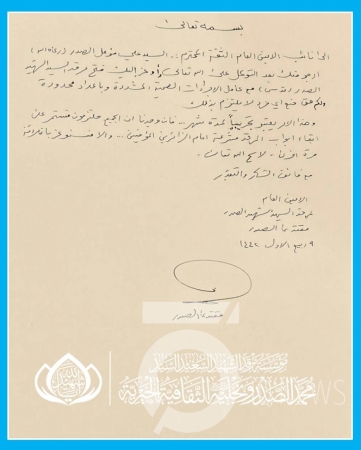 بسمه تعالى
الى نائب الامين العام الثقة المحترم: السيد علي مؤمل الصدر (رعاه الله)
ارجو منك بعد التوكل على الله تعالى أوعز اليك فتح مرقد السيد الشهيد
الصدر (قدس) مع كامل الاجراءات الصحية المشددة وباعداد محدودة
ولكم حق منع أي فرد لا يلتزم بذلك
وهذا الامر يعتبر تجريبياً لمدة شهر.. فان وجدنا ان الجميع ملتزمون فنستمر على
ابقاء ابواب المرقد مشرعة امام الزائرين المؤمنين.. والا فسنوعز باغلاقه
مرة اخرى لا سمح الله تعالى
مع فائق الشكر والتقدير
الامين العام
لمرقد السيد الشهيد الصدر
مقتدى الصدر
٩ ربيع الاول ١٤٤٢
مقتدى الصدر
مؤسسة مرقد الشهيد السعيد السيد
محمد الصدر ونجليه الثقافية الخيرية
NEWS